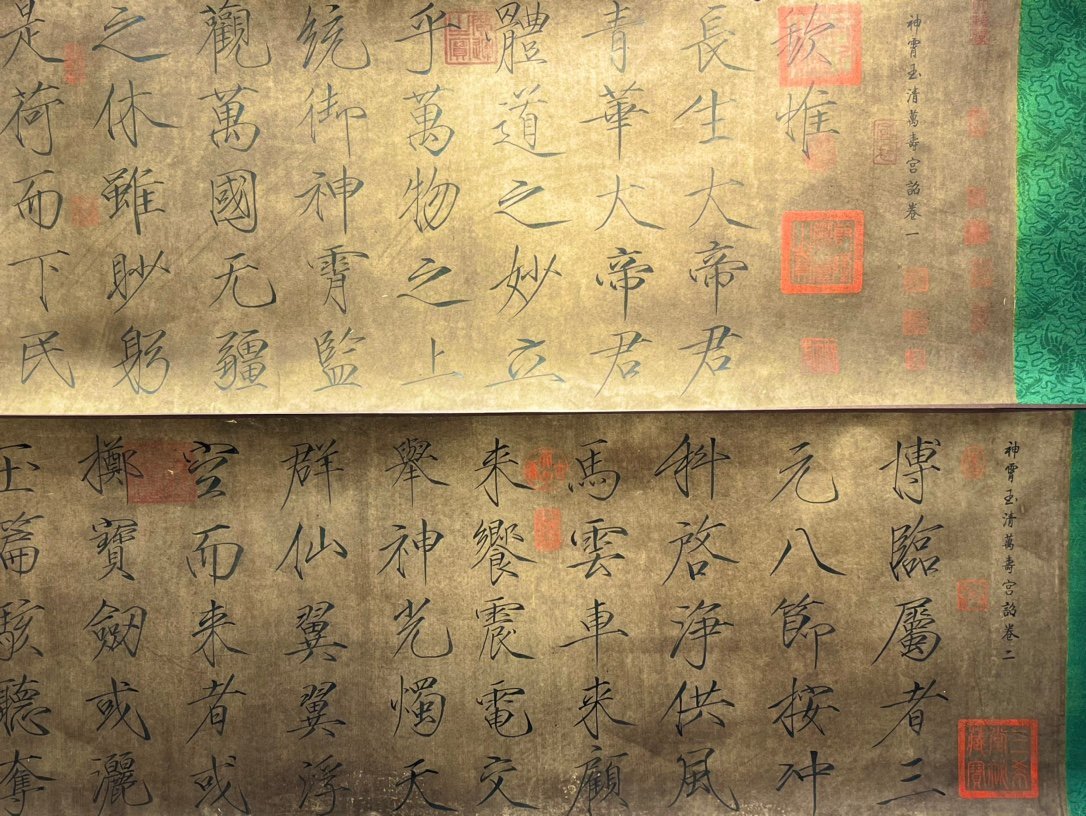 神霄玉清萬壽宮詔卷一
欽惟
長生大帝君
青華大帝君
體道之妙立
乎萬物之上
统御神霄監
觀萬國无疆
之休雖眇躬
是荷而下民
神霄玉清萬壽宮詔卷二
博臨屬者三
元八節按冲
科啓淨供風
馬雲車来顧
来饗震電交
舉神光燭天
群仙翼翼浮
空而来者或
擲寶劒或灑
玉篇駭聽奪